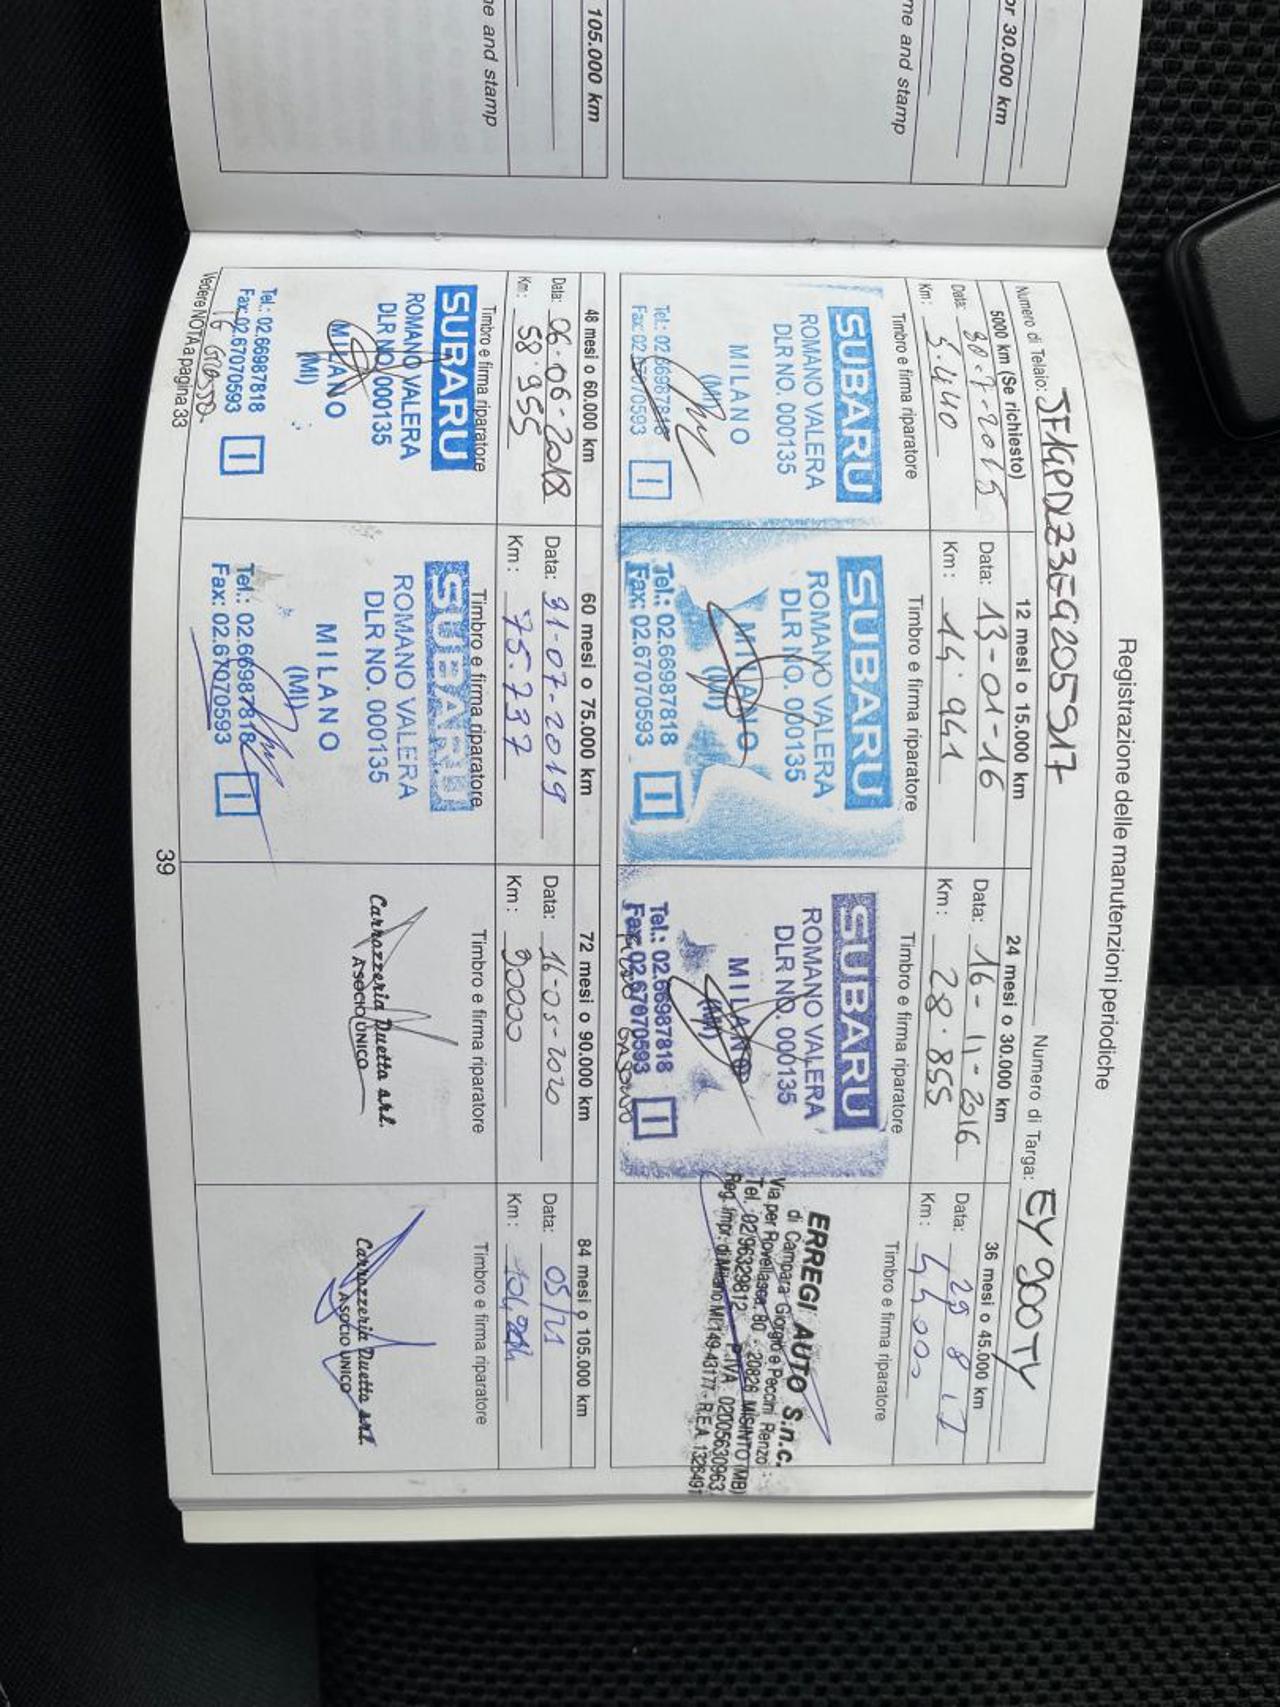 105.000 km
me and stamp
or 30.000 km
me and stamp
Registrazione delle manutenzioni periodiche
Numero di Telaio: JF1GPDLZ3EG205917
Numero di Targa: EY900TY
5000 km (Se richiesto)
Data: 30-7-2015
Km: 5.440
Timbro e firma riparatore
SUBARU
ROMANO VALERA
DLR NO. 000135
MILANO
(MI)
Tel.: 02.66987818
Fax: 02.67070593
I
12 mesi o 15.000 km
Data: 13-01-16
Km: 14.941
Timbro e firma riparatore
SUBARU
ROMANO VALERA
DLR NO. 000135
MILANO
(MI)
Tel.: 02.66987818
Fax: 02.67070593
I
24 mesi o 30.000 km
Data: 16-11-2016
Km: 28.855
Timbro e firma riparatore
SUBARU
ROMANO VALERA
DLR NO. 000135
MILANO
(MI)
Tel.: 02.66987818
Fax: 02.67070593
I
36 mesi o 45.000 km
Data: 29 8 17
Km: 44000
Timbro e firma riparatore
ERREGI AUTO S.n.c.
di Campara Giorgio e Peccini Renzo
Via per Rovellasca, 80 - 20826 MISINTO (MB)
Tel. 02/96329812 - P.IVA 02005630963
Reg. Impr. di Milano MI-149-43177 - R.E.A. 1326491
48 mesi o 60.000 km
Data: 06-06-2018
Km: 58.955
Timbro e firma riparatore
SUBARU
ROMANO VALERA
DLR NO. 000135
MILANO
(MI)
Tel.: 02.66987818
Fax: 02.67070593
I
Vedere NOTA a pagina 33
60 mesi o 75.000 km
Data: 31-07-2019
Km: 75.737
Timbro e firma riparatore
SUBARU
ROMANO VALERA
DLR NO. 000135
MILANO
(MI)
Tel.: 02.66987818
Fax: 02.67070593
I
72 mesi o 90.000 km
Data: 16-05-2020
Km: 90000
Timbro e firma riparatore
Carrozzeria Duetto s.r.l.
A SOCIO UNICO
84 mesi o 105.000 km
Data: 05/21
Km:
Timbro e firma riparatore
Carrozzeria Duetto s.r.l.
A SOCIO UNICO
39